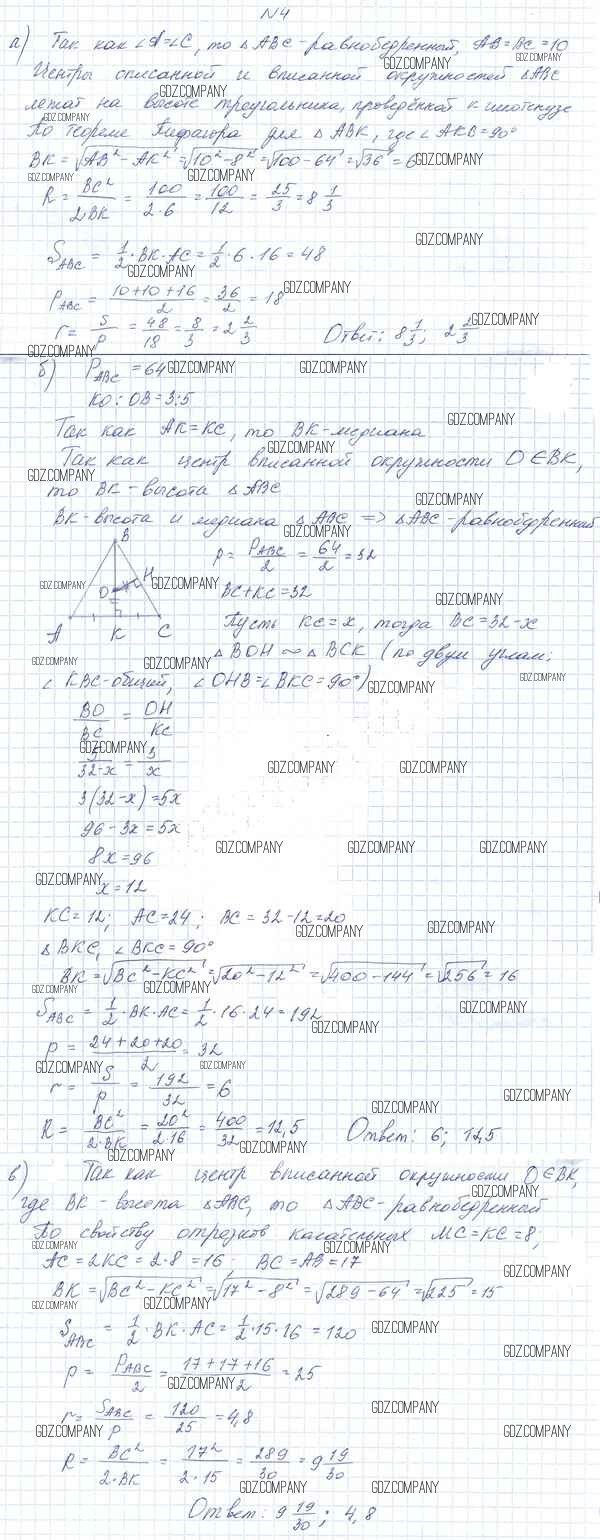 №4
а) Так как ∠A=∠C, то △ABC - равнобедренный, AB=BC=10
Центры описанной и вписанной окружностей △ABC
лежат на высоте треугольника, проведённой к гипотенузе
По теореме Пифагора для △ABK, где ∠AKB=90°
BK = √(AB² - AK²) = √(10² - 8²) = √(100 - 64) = √36 = 6
R = BC²/(2BK) = 100/(2·6) = 100/12 = 25/3 = 8 1/3
S_ABC = 1/2 · BK · AC = 1/2 · 6 · 16 = 48
P_ABC = (10+10+16)/2 = 36/2 = 18
r = S/p = 48/18 = 8/3 = 2 2/3 Ответ: 8 1/3; 2 2/3
б) P_ABC = 64
KO : OB = 3:5
Так как AK=KC, то BK - медиана
Так как центр вписанной окружности O∈BK,
то BK - высота △ABC
BK - высота и медиана △ABC => △ABC - равнобедренный
B
O
H
A
K
C
p = P_ABC/2 = 64/2 = 32
BC+KC=32
Пусть KC=x, тогда BC=32-x
△BOH ∾ △BCK (по двум углам:
∠KBC - общий, ∠OHB=∠BKC=90°)
BO/BC = OH/KC
5/(32-x) = 3/x
3(32-x)=5x
96-3x=5x
8x=96
x=12
KC=12; AC=24; BC=32-12=20
△BKC, ∠BKC=90°
BK = √(BC² - KC²) = √(20² - 12²) = √(400 - 144) = √256 = 16
S_ABC = 1/2 · BK · AC = 1/2 · 16 · 24 = 192
p = (24+20+20)/2 = 32
r = S/p = 192/32 = 6
R = BC²/(2·BK) = 20²/(2·16) = 400/32 = 12,5 Ответ: 6; 12,5
в) Так как центр вписанной окружности O∈BK,
где BK - высота △ABC, то △ABC - равнобедренный
По свойству отрезков касательных MC=KC=8;
AC=2KC=2·8=16; BC=AB=17
BK = √(BC² - KC²) = √(17² - 8²) = √(289 - 64) = √225 = 15
S_ABC = 1/2 · BK · AC = 1/2 · 15 · 16 = 120
p = P_ABC/2 = (17+17+16)/2 = 25
r = S_ABC/p = 120/25 = 4,8
R = BC²/(2·BK) = 17²/(2·15) = 289/30 = 9 19/30
Ответ: 9 19/30; 4,8
GDZ.COMPANY